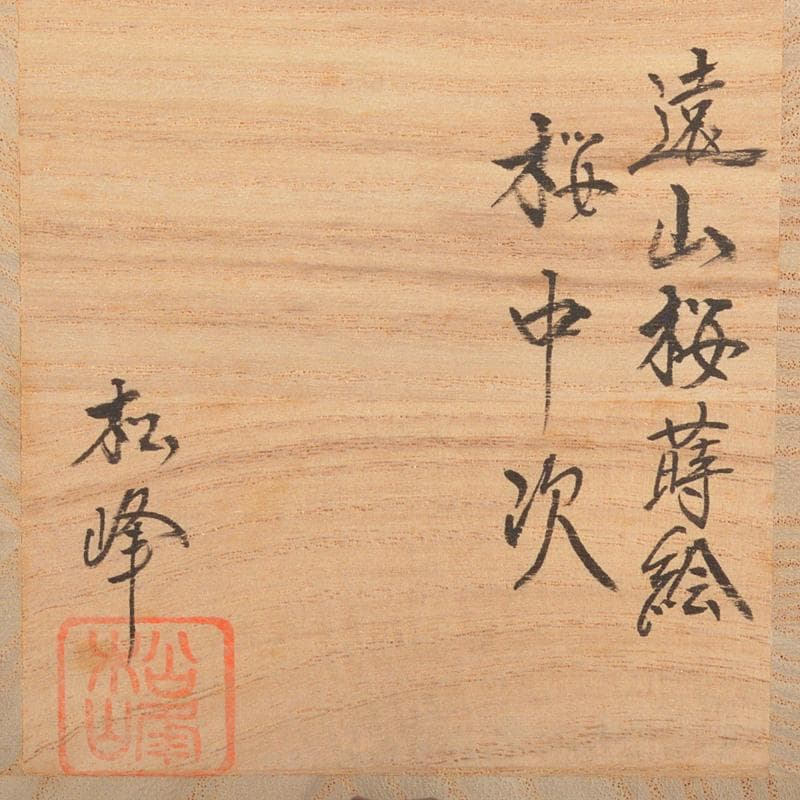 遠山桜蒔絵
桜中次
松峰
松峰